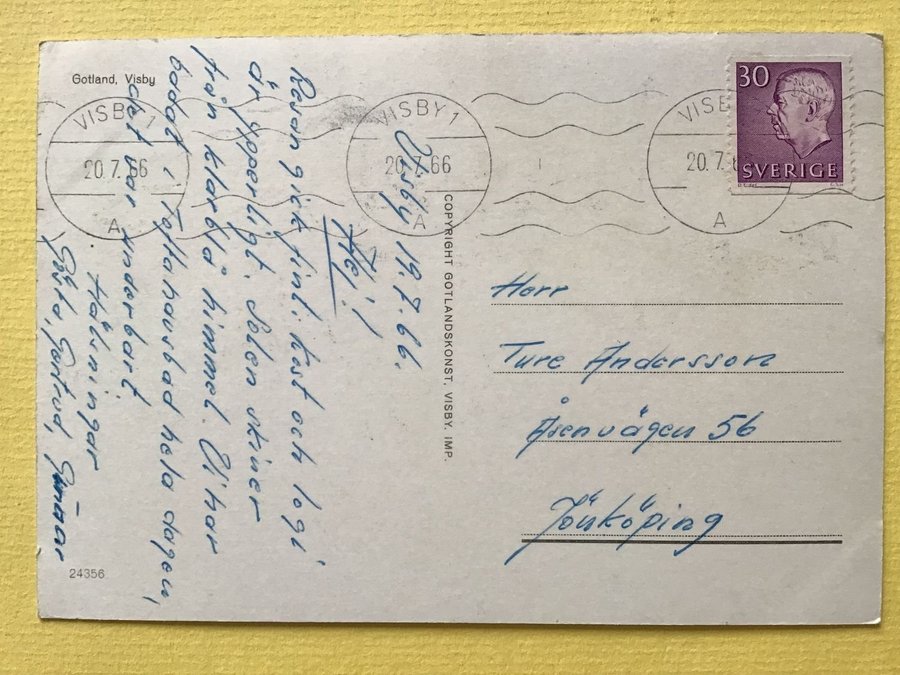 Gotland, Visby
VISBY 1
20.7.66
A
VISBY 1
20.7.66
A
20.7.6
A
30
SVERIGE
Visby 19.7.66.
Hej!
Resan gick fint, kost och logi
är ypperligt. Solen skiner
från klarblå himmel. Vi har
badat i Toftahavsbad hela dagen,
det var underbart.
Hälsningar
Gösta, Gertud, Gunnar
COPYRIGHT GOTLANDSKONST, VISBY. IMP.
Herr
Ture Andersson
Åsenvägen 56
Jönköping
24356